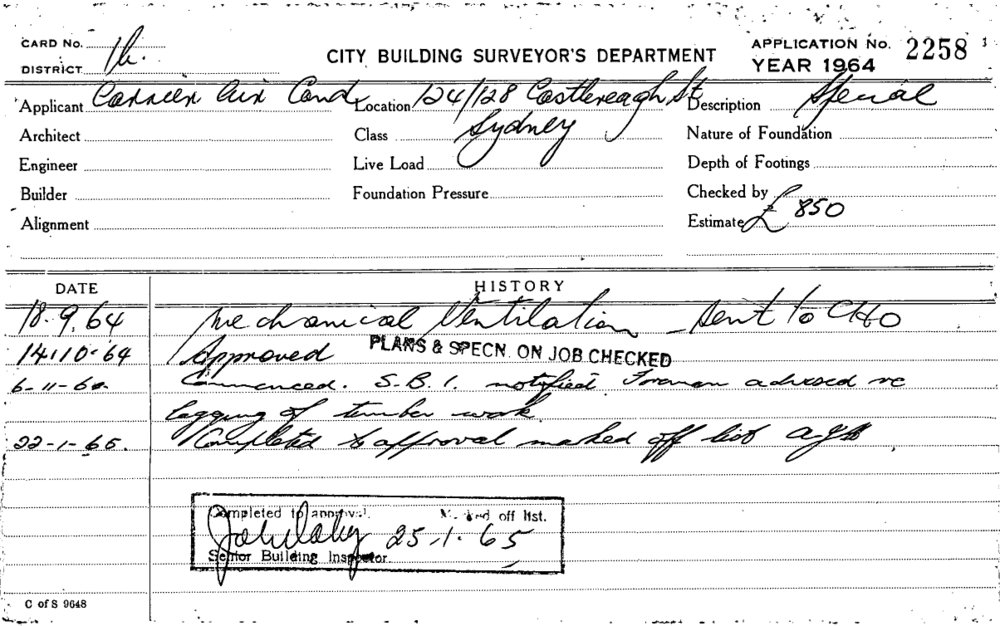 CARD No. 1h.
CITY BUILDING SURVEYOR'S DEPARTMENT
APPLICATION No. 2258
DISTRICT
YEAR 1964
Applicant Carrier Air Cond Location 124/128 Castlereagh St Description Special
Architect Class Sydney Nature of Foundation
Engineer Live Load Depth of Footings
Builder Foundation Pressure Checked by
Alignment Estimate £ 850
DATE HISTORY
18.9.64 Mechanical Ventilation - sent to CHO
14.10.64 Approved PLANS & SPECN. ON JOB CHECKED
6-11-64 Commenced. S.B.I. notified Foreman advised re
lagging of timber work
22-1-65. Completed to approval marked off list
Completed to approval. Marked off list.
25-1-65
Senior Building Inspector
C of S 9648